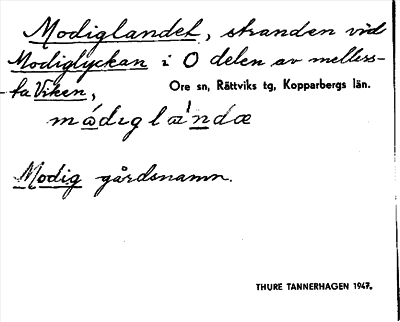 Modiglandet, stranden vid
Modiglyckan i O delen av mellers-
ta Viken,
Ore sn, Rättviks tg, Kopparbergs län.
mådıglandæ
Modig gårdsnamn.
THURE TANNERHAGEN 1947.